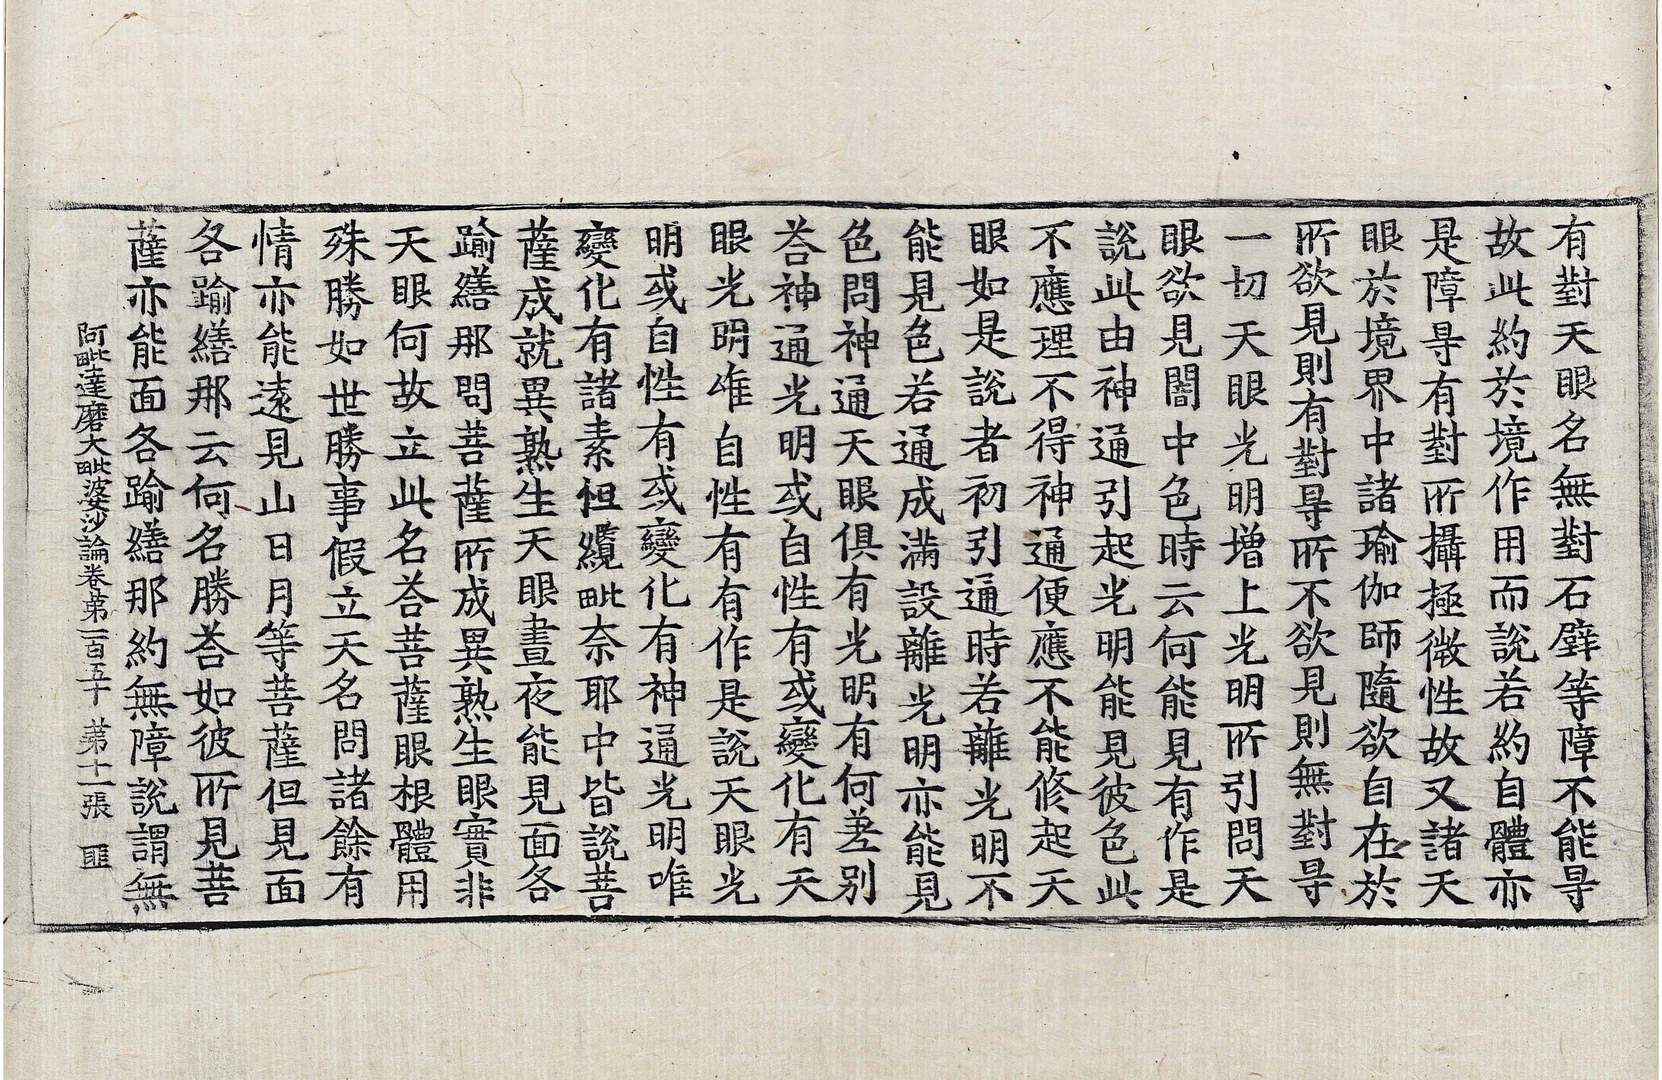 有對天眼名無對石壁等障不能㝵
故此約於境作用而說若約自體亦
是障㝵有對所攝極微性故又諸天
眼於境界中諸瑜伽師隨欲自在於
所欲見則有對㝵所不欲見則無對㝵
一切天眼光明增上光明所引問天
眼欲見闇中色時云何能見有作是
說此由神通引起光明能見彼色此
不應理不得神通便應不能修起天
眼如是說者初引通時若離光明不
能見色若通成滿設離光明亦能見
色問神通天眼俱有光明有何差別
荅神通光明或自性有或變化有天
眼光明唯自性有有作是說天眼光
明或自性有或變化有神通光明唯
變化有諸素怛纜毗奈耶中皆說菩
薩成就異熟生天眼晝夜能見面各
踰繕那問菩薩所成異熟生眼實非
天眼何故立此名荅菩薩眼根體用
殊勝如世勝事假立天名問諸餘有
情亦能遠見山日月等菩薩但見面
各踰繕那云何名勝荅如彼所見菩
薩亦能面各踰繕那約無障說謂無
阿毗達磨大毗婆沙論卷第一百五十 第十一張 匪